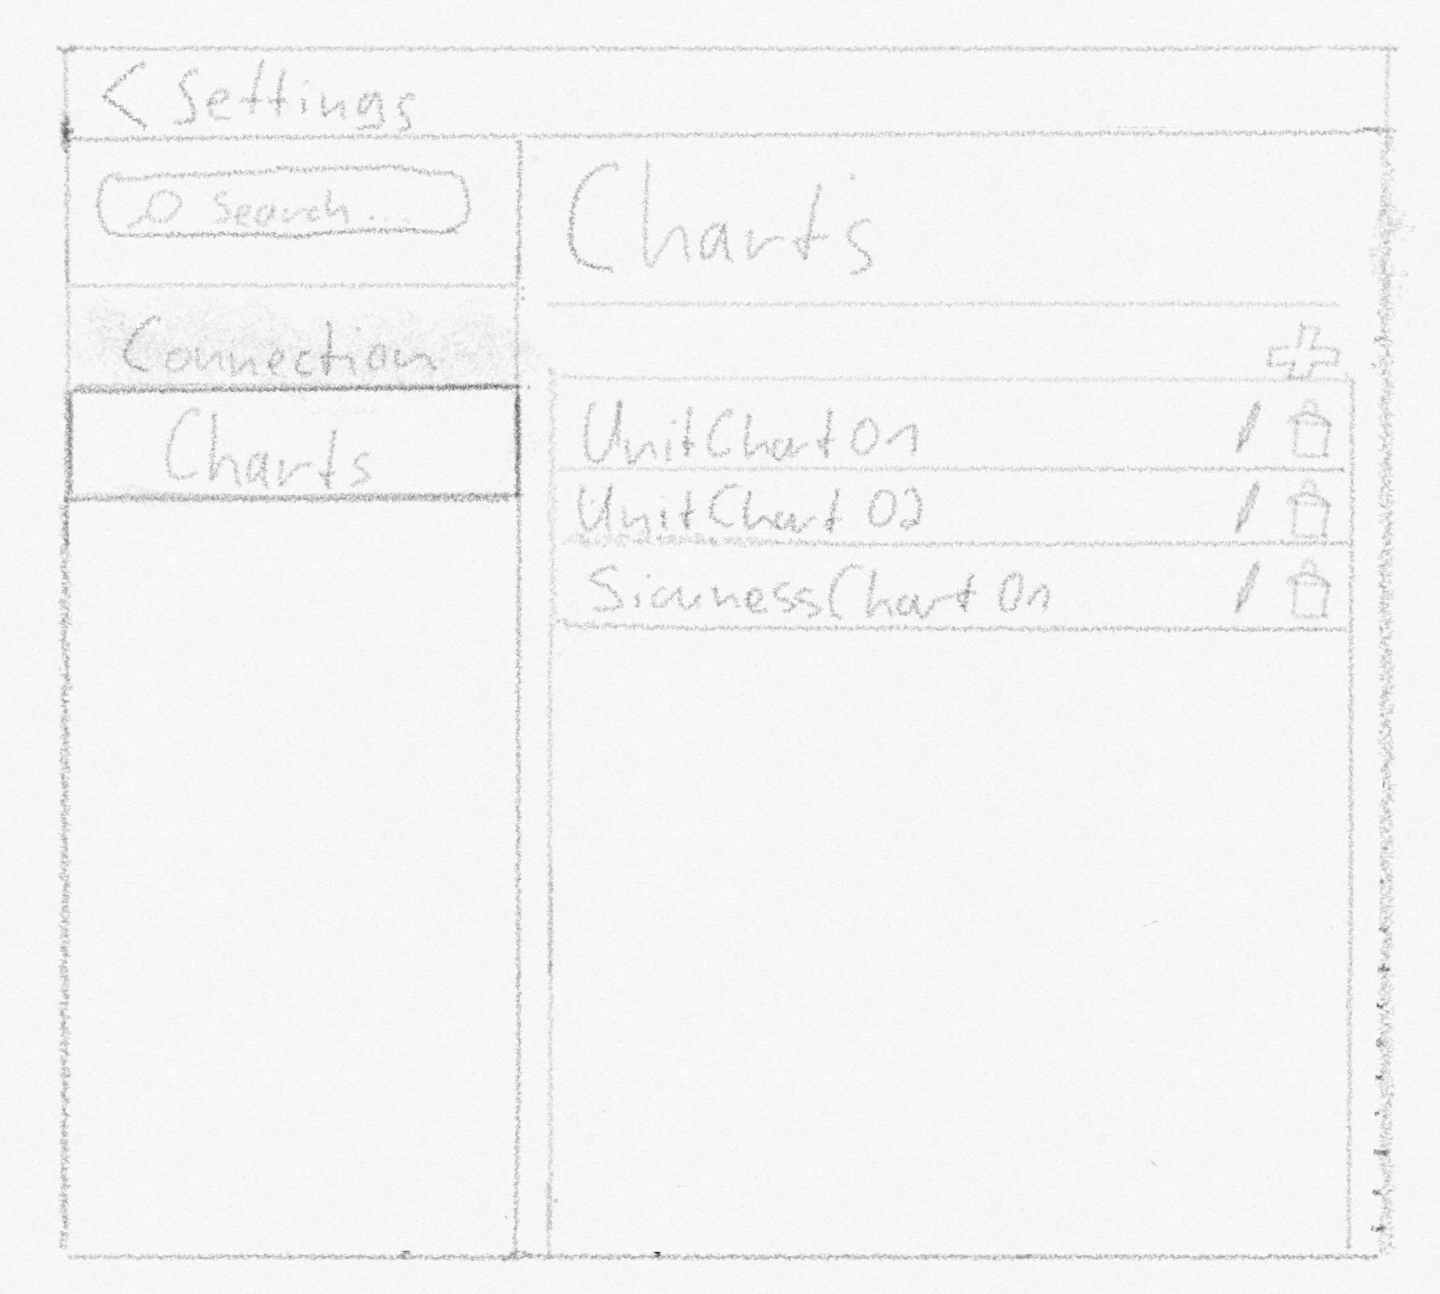 < Settings
Search...
Connection
Charts
Charts
UnitChart 01
UnitChart 02
SicunessChart 01